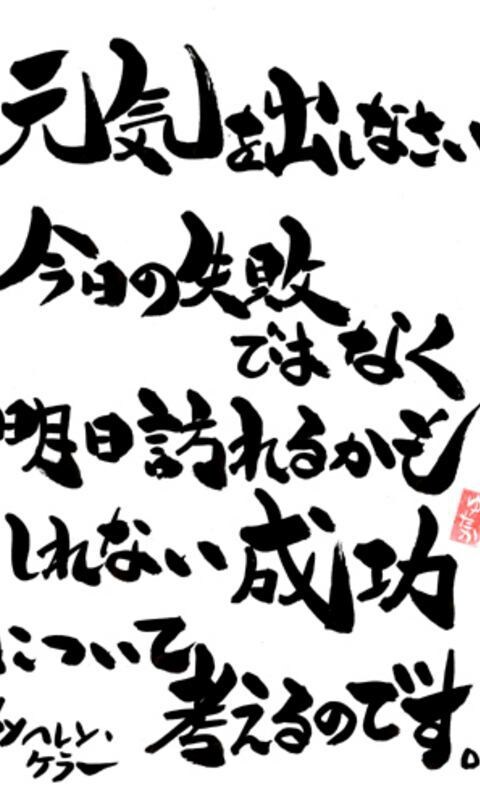 元気を出しなさい
今日の失敗
ではなく
明日訪れるかも
しれない成功
について
考えるのです。
ヘレン・
ケラー
ゆたか